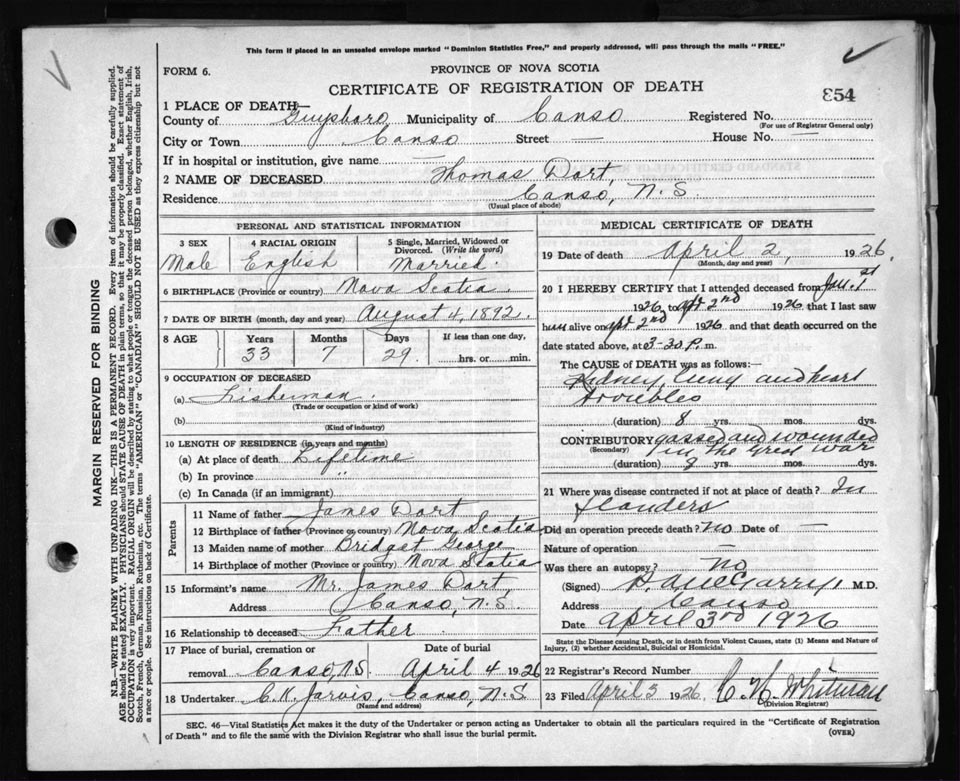 This form if placed in an unsealed envelope marked "Dominion Statistics Free," and properly addressed, will pass through the mails "FREE."
FORM 6.
PROVINCE OF NOVA SCOTIA
CERTIFICATE OF REGISTRATION OF DEATH
854
1 PLACE OF DEATH—
County of Guysboro Municipality of Canso Registered No.
(For use of Registrar General only)
City or Town Canso Street — House No. —
If in hospital or institution, give name —
2 NAME OF DECEASED Thomas Dort,
Residence Canso, N.S.
(Usual place of abode)
PERSONAL AND STATISTICAL INFORMATION
3 SEX 4 RACIAL ORIGIN 5 Single, Married, Widowed or Divorced. (Write the word)
Male English Married.
6 BIRTHPLACE (Province or country) Nova Scotia
7 DATE OF BIRTH (month, day and year) August 4, 1892.
8 AGE Years Months Days If less than one day,
33 7 29 ......hrs. or ......min.
9 OCCUPATION OF DECEASED
(a) Fisherman
(Trade or occupation or kind of work)
(b)
(Kind of industry)
10 LENGTH OF RESIDENCE (in years and months)
(a) At place of death Lifetime
(b) In province "
(c) In Canada (if an immigrant)
Parents
11 Name of father James Dort
12 Birthplace of father (Province or country) Nova Scotia
13 Maiden name of mother Bridget George
14 Birthplace of mother (Province or country) Nova Scotia
15 Informant's name Mr. James Dort,
Address Canso, N.S.
16 Relationship to deceased Father
17 Place of burial, cremation or removal Canso, N.S. Date of burial April 4 1926
18 Undertaker C.K. Jarvis, Canso, N.S.
(Name and address)
MEDICAL CERTIFICATE OF DEATH
19 Date of death April 2, 1926.
(Month, day and year)
20 I HEREBY CERTIFY that I attended deceased from Jan. 1st
1926, to Apt 2nd 1926 that I last saw
him alive on Apt. 2nd 1926 and that death occurred on
date stated above, at 3-30 P. m.
The CAUSE OF DEATH was as follows:—
Kidney, lung and heart
troubles
(duration) 8 yrs. mos. dys.
CONTRIBUTORY gassed and wounded
(Secondary) in the Great War
(duration) 8 yrs. mos. dys.
21 Where was disease contracted if not at place of death? In
Flanders
Did an operation precede death? No Date of —
Nature of operation —
Was there an autopsy? No
(Signed) M.D.
Address Canso
Date April 3rd 1926
State the Disease causing Death, or in death from Violent Causes, state (1) Means and Nature of Injury, (2) whether Accidental, Suicidal or Homicidal.
22 Registrar's Record Number
23 Filed April 3 1926. C. H. Whitman
(Division Registrar)
SEC. 46—Vital Statistics Act makes it the duty of the Undertaker or person acting as Undertaker to obtain all the particulars required in the "Certificate of Registration
of Death" and to file the same with the Division Registrar who shall issue the burial permit.
(OVER)
MARGIN RESERVED FOR BINDING
N.B.—WRITE PLAINLY WITH UNFADING INK—THIS IS A PERMANENT RECORD. Every item of information should be carefully supplied.
AGE should be stated EXACTLY. PHYSICIANS should STATE CAUSE OF DEATH in plain terms, so that it may be properly classified. Exact statement of
OCCUPATION is very important. RACIAL ORIGIN will be described by stating to what people or tongue the deceased person belonged, whether English, Irish,
Scotch, French, German, Russian, Ruthenian, etc. The terms "AMERICAN" or "CANADIAN" SHOULD NOT BE USED as they express citizenship but not
a race or people. See instructions on back of Certificate.